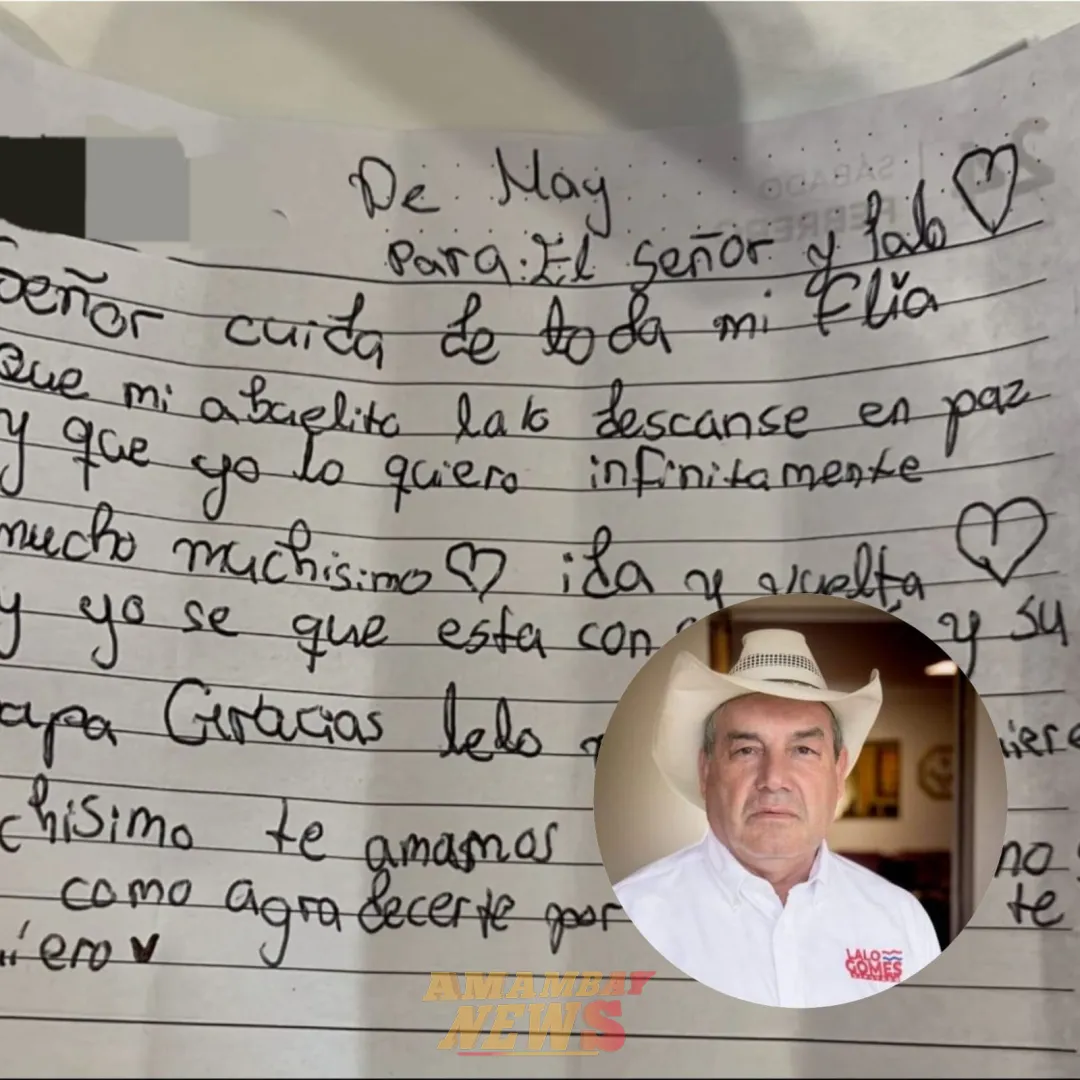 De May
Para: El señor y lalo
Señor cuida de toda mi Flia
Que mi abuelito lalo descanse en paz
y que yo lo quiero infinitamente
mucho muchisimo ida y vuelta
y yo se que esta con y su
apa Gracias lelo
chisimo te amamos no
como agradecerte por te
iero
SÁBADO
FEBRERO
LALO
GOMES
AMAMBAY
NEWS